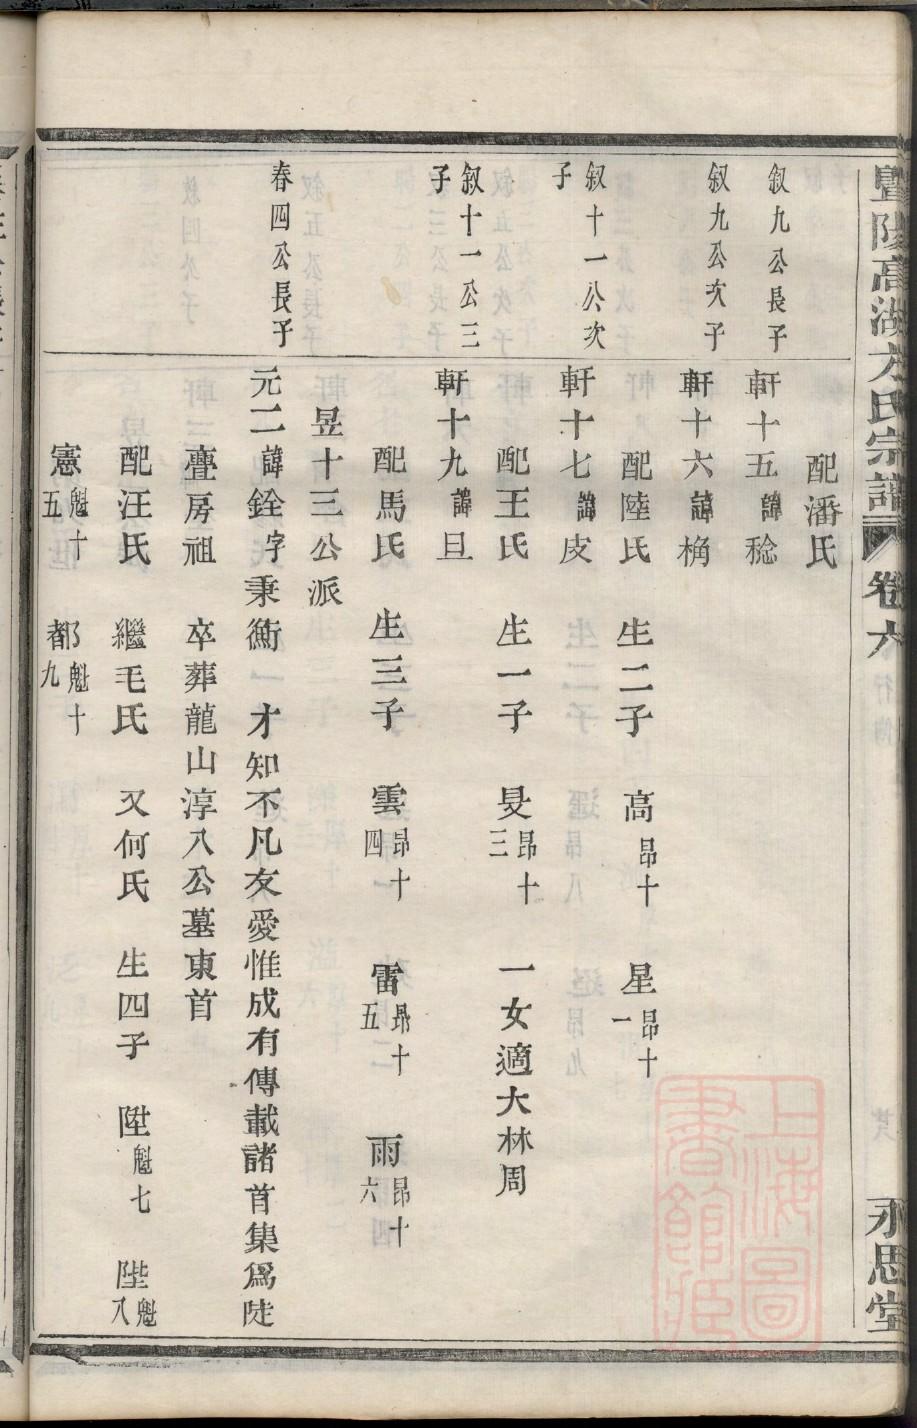 暨陽高湖方氏宗譜 卷六 永思堂
配潘氏
叙九公長子
軒十五諱稔
叙九公次子
軒十六諱桷
配陸氏 生二子 高昂十 星昂十一
叙十一公次子
軒十七諱皮
配王氏 生一子 旻昂十三 一女適大林周
叙十一公三子
軒十九諱旦
配馬氏 生三子 雲昂十四 雷昴十五 雨昂十六
昱十三公派
春四公長子
元二諱銓字秉衡 才知不凡友愛惟成有傳載諸首集爲陡
亹房祖 卒葬龍山淳八公墓東首
配汪氏 繼毛氏 又何氏 生四子 陞魁七 陛魁八
憲魁十五 都魁十九
上海圖書館